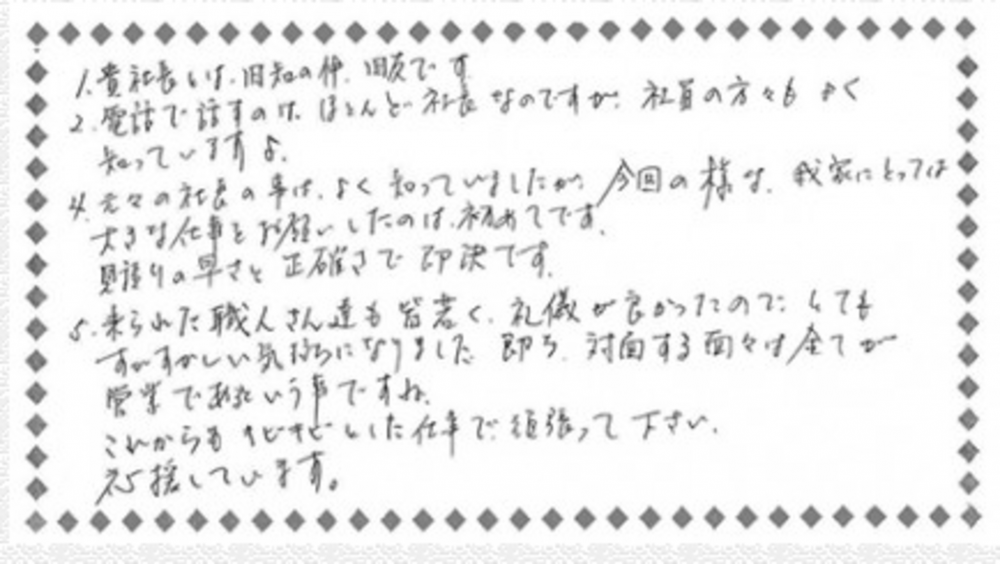 1. 貴社長とは、旧知の仲、旧友です
2. 電話で話すのは、ほとんど社長なのですが、社員の方々もよく
知っていますよ。
4. 元々の社長の事は、よく知っていましたが、今回の様な、我家にとっては
大きな仕事をお願いしたのは、初めてです。
見積りの早さと正確さで即決です。
5. 来られた職人さん達も皆若く、礼儀が良かったので、とても
すがすがしい気持ちになりました。即ち、対面する面々は全てが
営業であるという事ですね。
これからもキビキビとした仕事で、頑張って下さい。
応援しています。